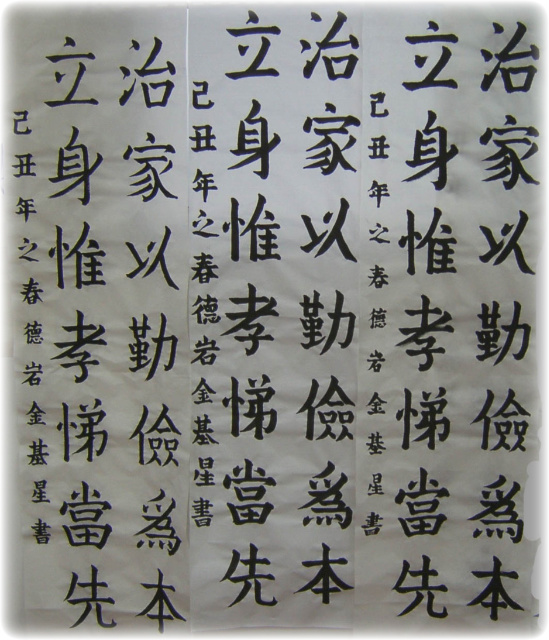 治家以勤儉爲本
立身惟孝悌當先
己丑年之春德岩金基星書
治家以勤儉爲本
立身惟孝悌當先
己丑年之春德岩金基星書
治家以勤儉爲本
立身惟孝悌當先
己丑年之春德岩金基星書